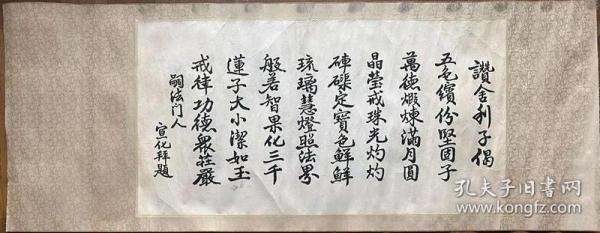 讚舍利子偈
五色繽份堅固子
萬德煅煉滿月圓
晶瑩戒珠光灼灼
硨磲定寶色鮮鮮
琉璃慧燈照法界
般若智果化三千
蓮子大小潔如玉
戒律功德衆莊嚴
嗣法门人
宣化拜題
孔夫子旧書网
www.kongfz.com